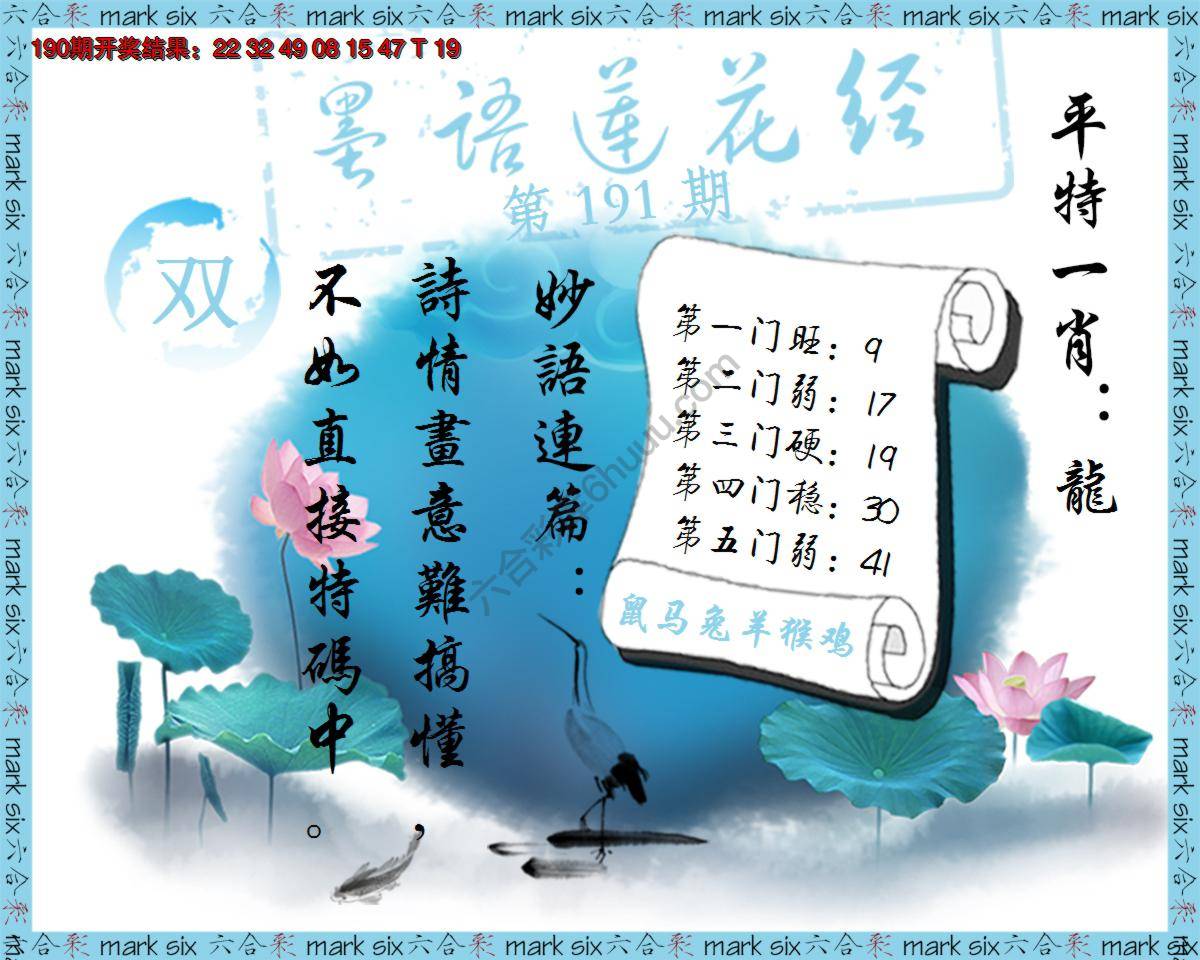 六合彩 mark six 六合彩 mark six 六合彩 mark six 六合彩 mark six 六合彩 mark six 六合彩 mark six
190期开奖结果：22 32 49 08 15 47 T 19
墨語莲花经
第 191 期
双
平特一肖：龍
妙語連篇：
詩情畫意難搞懂，
不如直接特碼中。
第一门旺：9
第二门弱：17
第三门硬：19
第四门稳：30
第五门弱：41
鼠马兔羊猴鸡
六合彩 mark six 六合彩 mark six 六合彩 mark six 六合彩 mark six 六合彩 mark six 六合彩 mark six